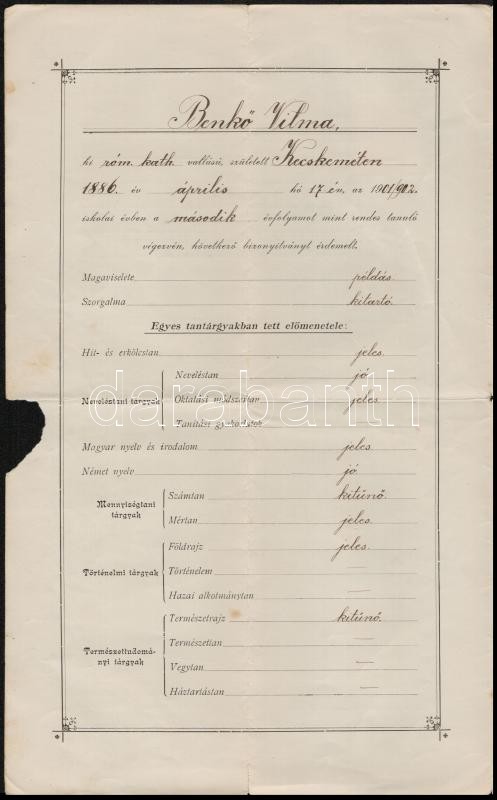 Benkő Vilma,
ki róm. kath. vallású, született Kecskeméten
1886. év április hó 17 én, az 1901/902.
iskolai évben a második évfolyamot mint rendes tanuló
végezvén, következő bizonyítványt érdemelt.
Magaviselete példás.
Szorgalma kitartó.
Egyes tantárgyakban tett előmenetele:
Hit- és erkölcstan jeles.
Neveléstani tárgyak
Neveléstan jó.
Oktatási módszertan jeles.
Tanítási gyakorlatok
Magyar nyelv és irodalom jeles
Német nyelv jó.
Mennyiségtani tárgyak
Számtan kitünő.
Mértan jeles.
Történelmi tárgyak
Földrajz jeles.
Történelem —
Hazai alkotmánytan —
Természettudomá-
nyi tárgyak
Természetrajz kitünő.
Természettan —
Vegytan —
Háztartástan —
darabanth